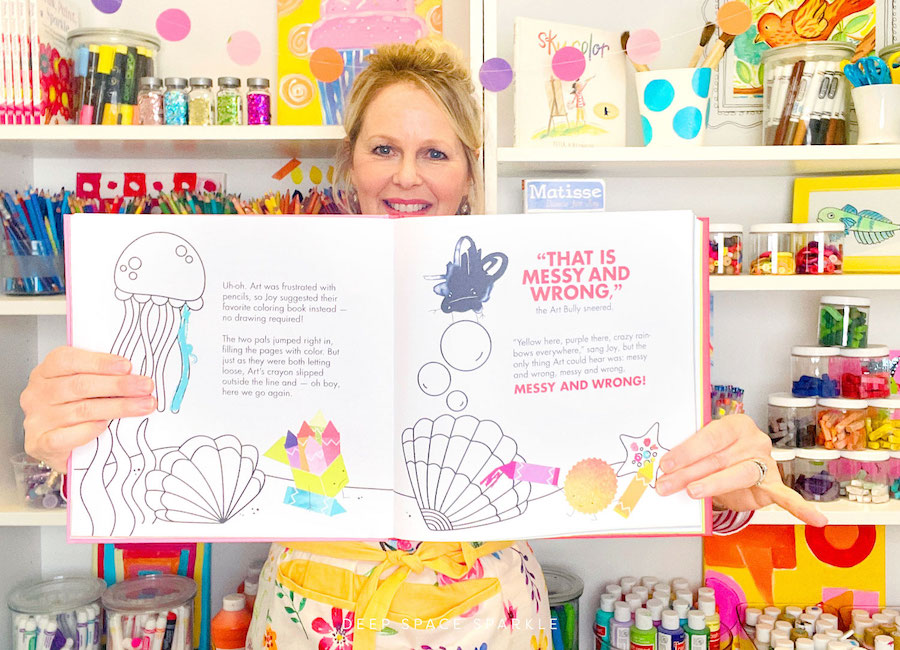 sky color
Matisse
Uh-oh. Art was frustrated with
pencils, so Joy suggested their
favorite coloring book instead —
no drawing required!
The two pals jumped right in,
filling the pages with color. But
just as they were both letting
loose, Art's crayon slipped
outside the line and — oh boy,
here we go again.
"THAT IS
MESSY AND
WRONG,"
the Art Bully sneered.
"Yellow here, purple there, crazy rain-
bows everywhere," sang Joy, but the
only thing Art could hear was: messy
and wrong, messy and wrong,
MESSY AND WRONG!
DEEP SPACE SPARKLE